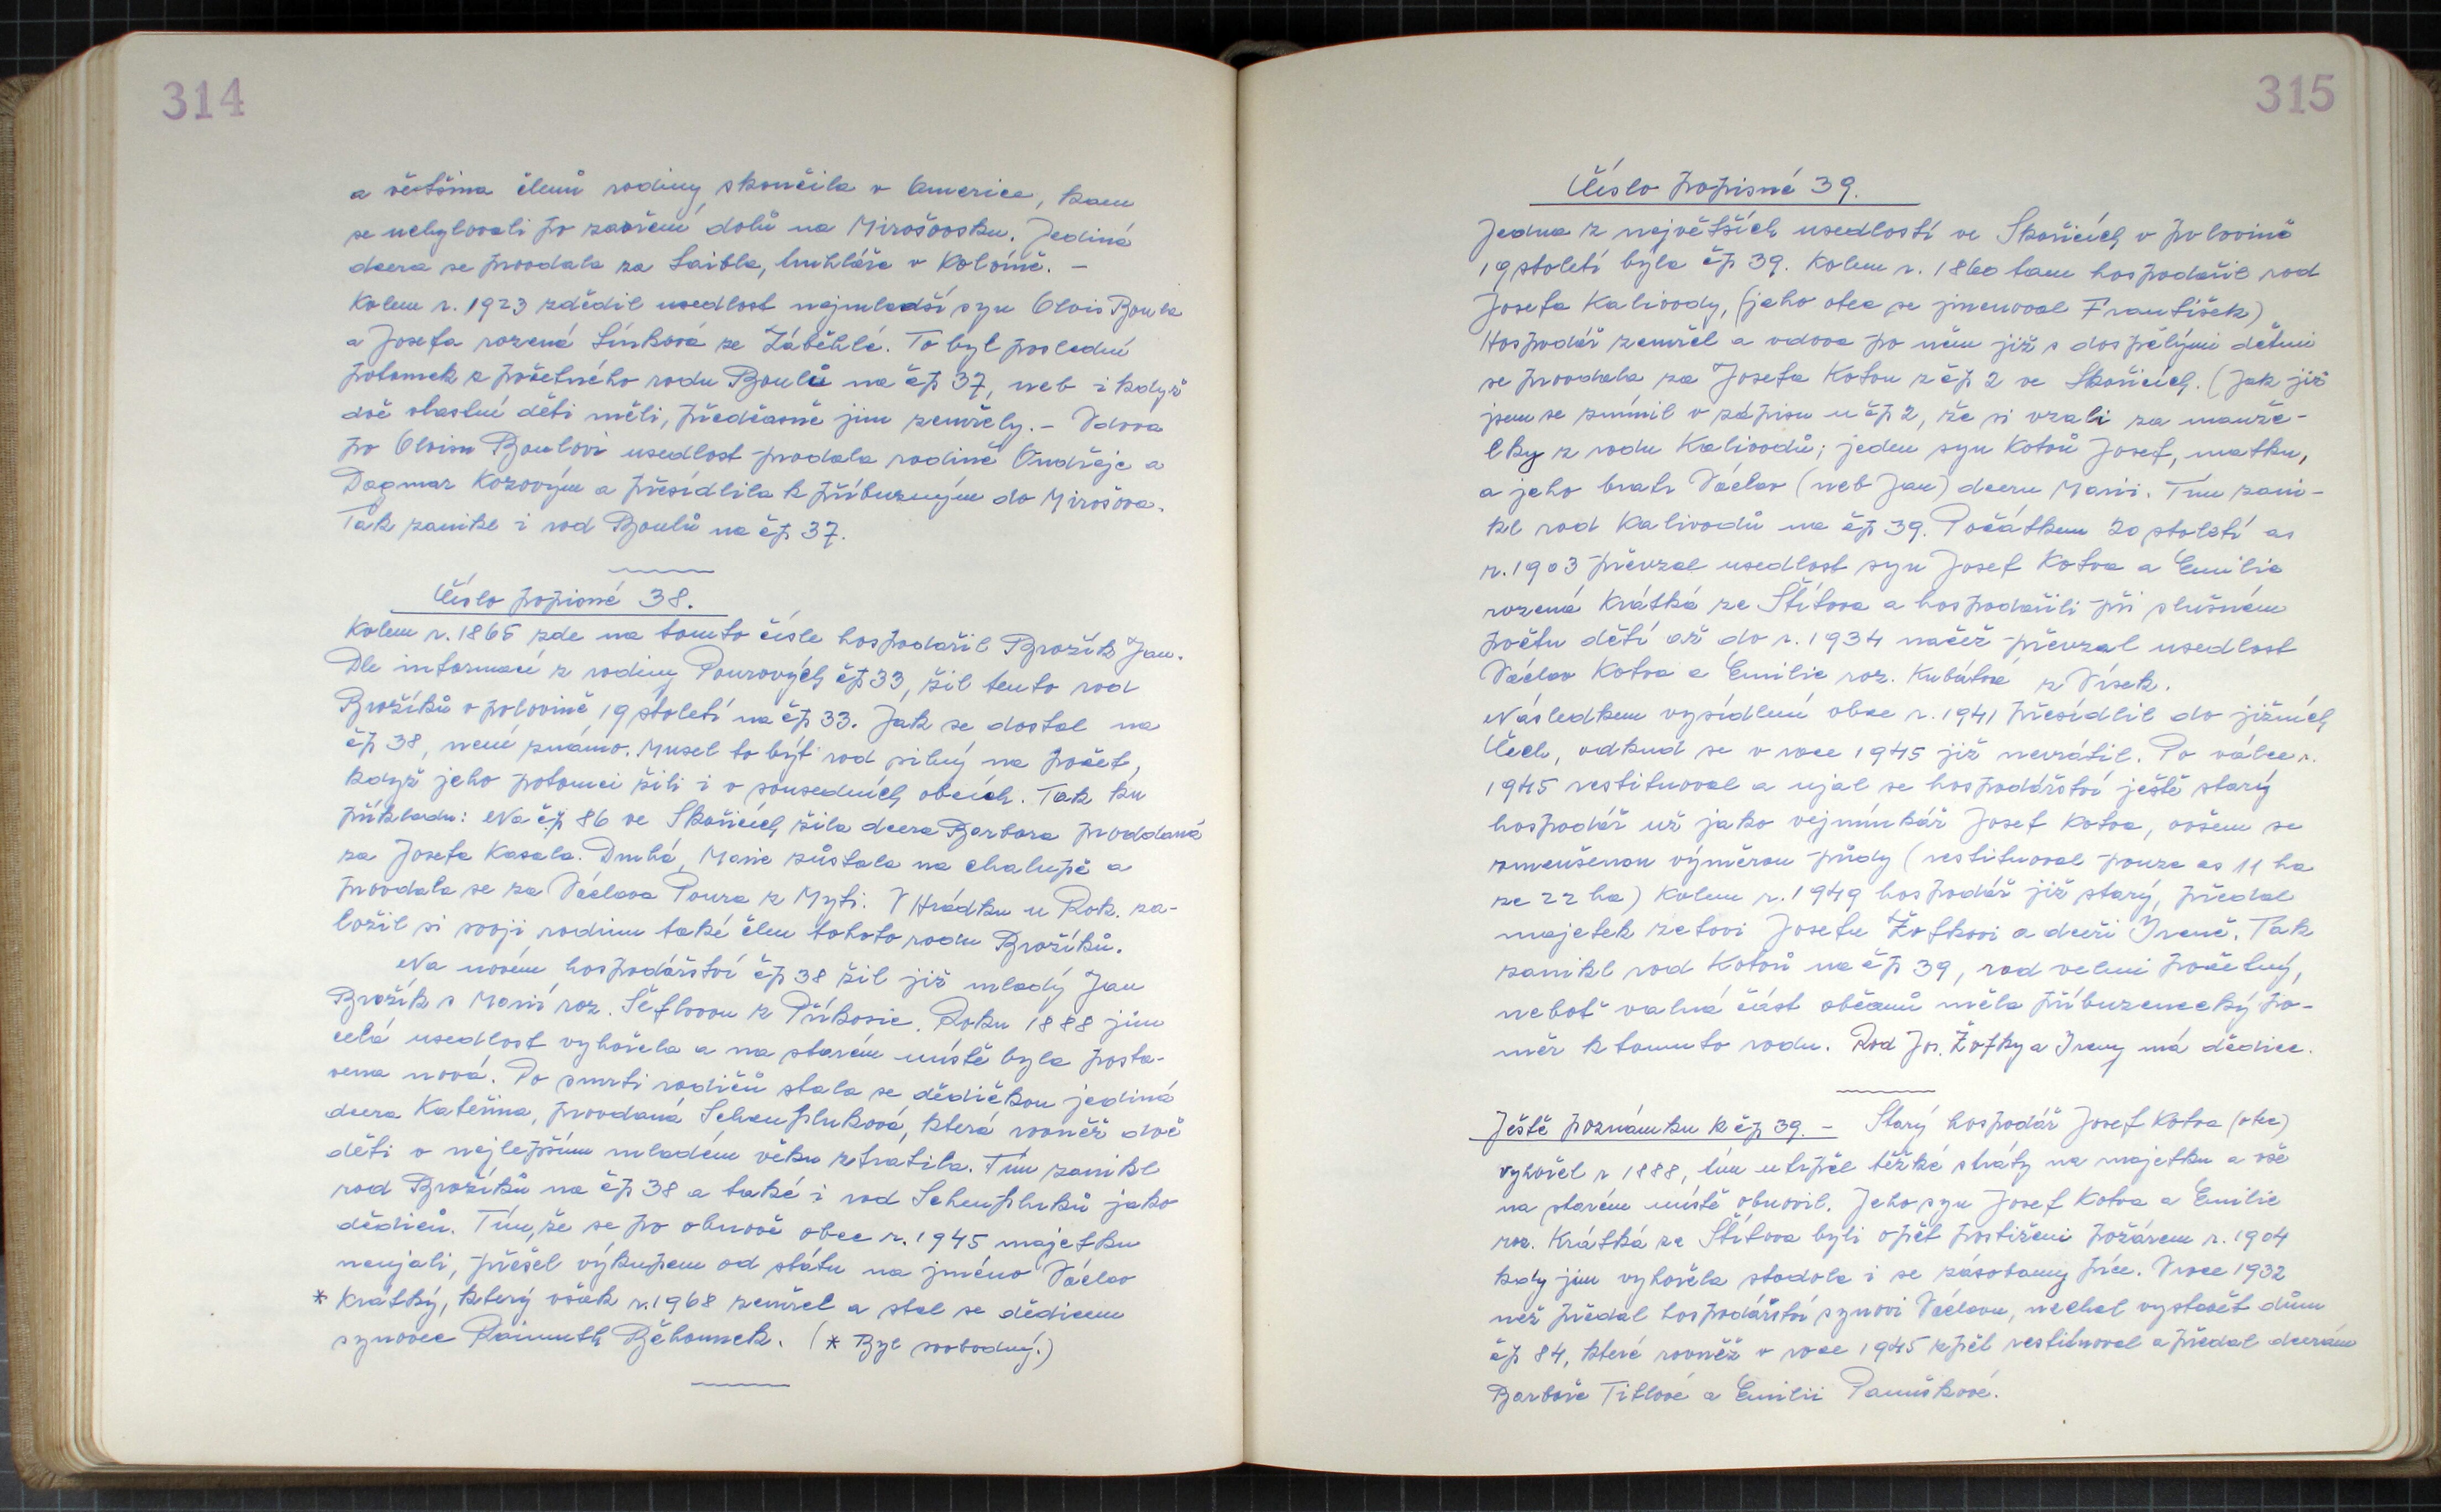 314
a většina členů rodiny skončila v Americe, kam
se uchylovali po zavření dolů na Mirošovsku. Jediná
dcera se provdala za Laibla, truhláře v Kolvíně. –
Kolem r. 1923 zdědil usedlost nejmladší syn Alois Boula
a Josefa rozená Línková ze Záběhlé. To byl poslední
potomek z početného rodu Boulů na čp 37, neb i když
dvě vlastní děti měli, předčasně jim zemřely. – Vdova
po Aloisu Boulovi usedlost prodala rodině Ondřeje a
Dagmar Kozovým a přesídlila k příbuzným do Mirošova.
Tak zanikl i rod Boulů na čp 37.
Číslo popisné 38.
Kolem r. 1865 zde na tomto čísle hospodařil Brožík Jan.
Dle informací z rodiny Pourových čp 33, žil tento rod
Brožíků v polovině 19 století na čp 33. Jak se dostal na
čp 38, není známo. Musel to být rod silný na počet,
když jeho potomci žili i v sousedních obcích. Tak ku
příkladu: Na čp 86 ve Skořicích žila dcera Barbora provdaná
za Josefa Kasala. Druhá, Marie zůstala na chalupě a
provdala se za Václava Poura z Mýti. V Hrádku u Rok. za-
ložil si svoji rodinu také člen tohoto rodu Brožíků.
Na novém hospodářství čp 38 žil již mladý Jan
Brožík s Marií roz. Šeflovou z Příkosic. Roku 1888 jim
celá usedlost vyhořela a na starém místě byla posta-
vena nová. Po smrti rodičů stala se dědičkou jediná
dcera Kateřina, provdaná Scheufluková, která rovněž dvě
děti v nejlepším mladém věku ztratila. Tím zanikl
rod Brožíků na čp 38 a také i rod Scheufluků jako
dědiců. Tím, že se po obnově obce r. 1945 majetku
neujali, přešel výkupem od státu na jméno Václav
* Krátký, který však r. 1968 zemřel a stal se dědicem
synovec Raimuth Běhounek. (* Byl svobodný.)
315
Číslo popisné 39.
Jedna z největších usedlostí ve Skořicích v polovině
19 století byla čp 39. Kolem r. 1860 tam hospodařil rod
Josefa Kalivody, (jeho otec se jmenoval František)
Hospodář zemřel a vdova po něm již s dospělými dětmi
se provdala za Josefa Kotvu z čp 2 ve Skořicích. (Jak již
jsem se zmínil v zápisu u čp 2, že si vzali za manže-
lky z rodu Kalivodů; jeden syn Kotvů Josef, matku,
a jeho bratr Václav (neb Jan) dceru Marii. Tím zani-
kl rod Kalivodů na čp 39. Počátkem 20 století as
r. 1903 převzal usedlost syn Josef Kotva a Emilie
rozená Krátká ze Štítova a hospodařili při slušném
počtu dětí až do r. 1934 načež převzal usedlost
Václav Kotva a Emilie roz. Kubátová z Vísek.
Následkem vysídlení obce r. 1941 přesídlil do jižních
Čech, odkud se v roce 1945 již nevrátil. Po válce r.
1945 restituoval a ujal se hospodářství ještě starý
hospodář už jako vejmínkář Josef Kotva, ovšem se
zmenšenou výměrou půdy (restituoval pouze as 11 ha
ze 22 ha) Kolem r. 1949 hospodář již starý, předal
majetek zetovi Josefu Žofkovi a dceři Ireně. Tak
zanikl rod Kotvů na čp 39, rod velmi početný,
neboť valná část občanů měla příbuzenecký po-
měr k tomuto rodu. Rod Jos. Žofky a Ireny má dědice.
Ještě poznámku k čp 39. – Starý hospodář Josef Kotva (otec)
vyhořel r 1888, tím utrpěl těžké ztráty na majetku a vše
na starém místě obnovil. Jeho syn Josef Kotva a Emilie
roz. Krátká ze Štítova byli opět postiženi požárem r. 1904
kdy jim vyhořela stodola i se zásobami píce. V roce 1932
než předal hospodářství synovi Václavu, nechal vystavět dům
čp 84, které rovněž v roce 1945 zpět restituoval a předal dcerám
Barboře Titlové a Emilii Panuškové.